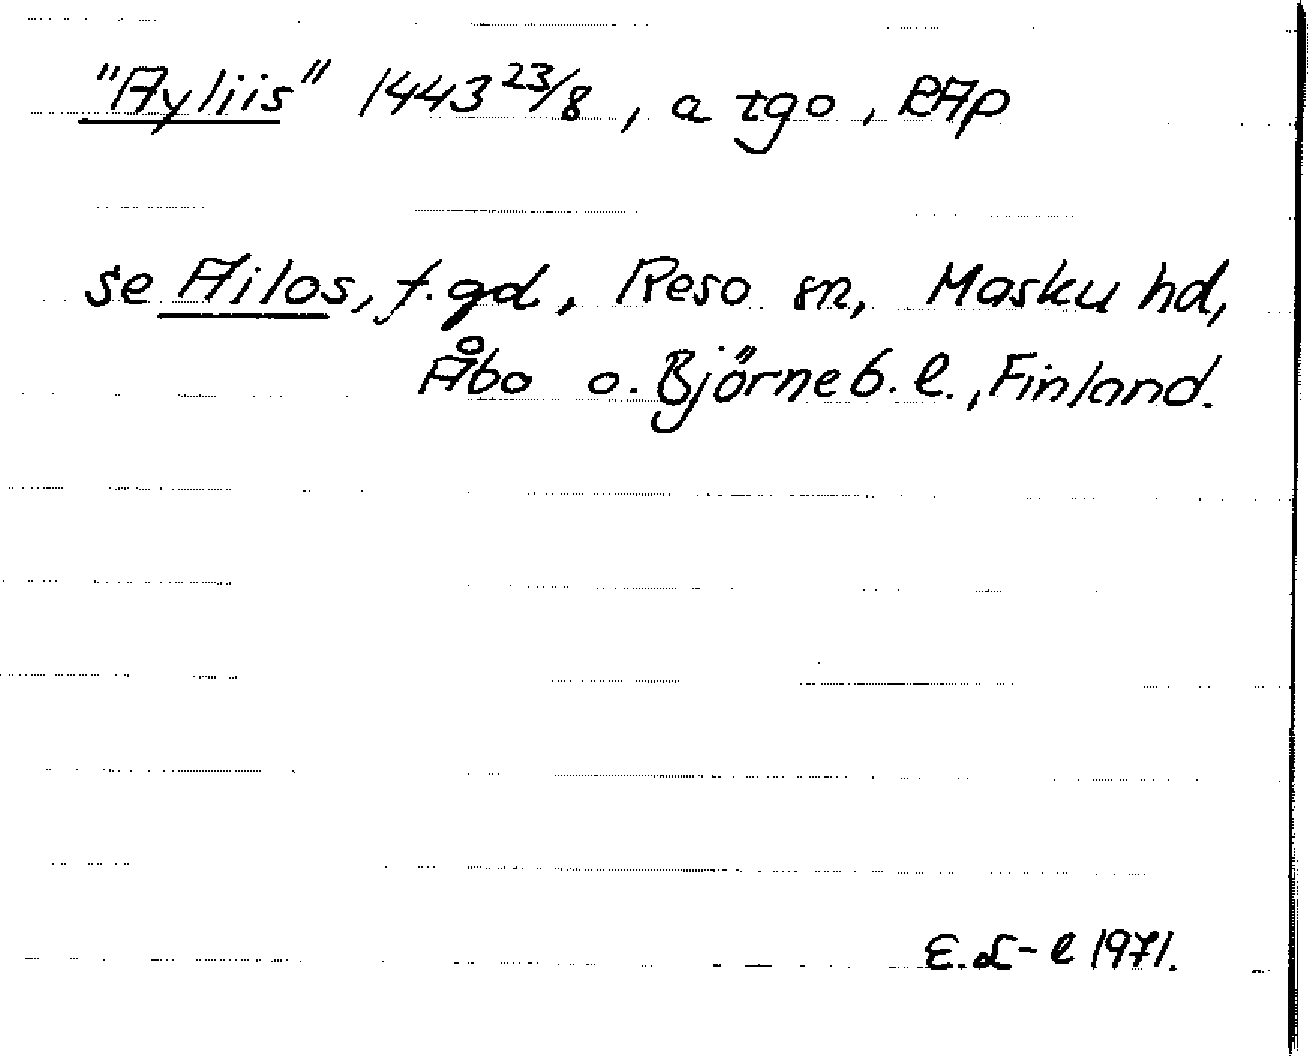 "Ayliis" 1443 23/8, a tgo, RAp
se Ailos, f. gd, Reso sn, Masku hd,
Åbo o. Björneb. l., Finland.
E.L-l 1971.